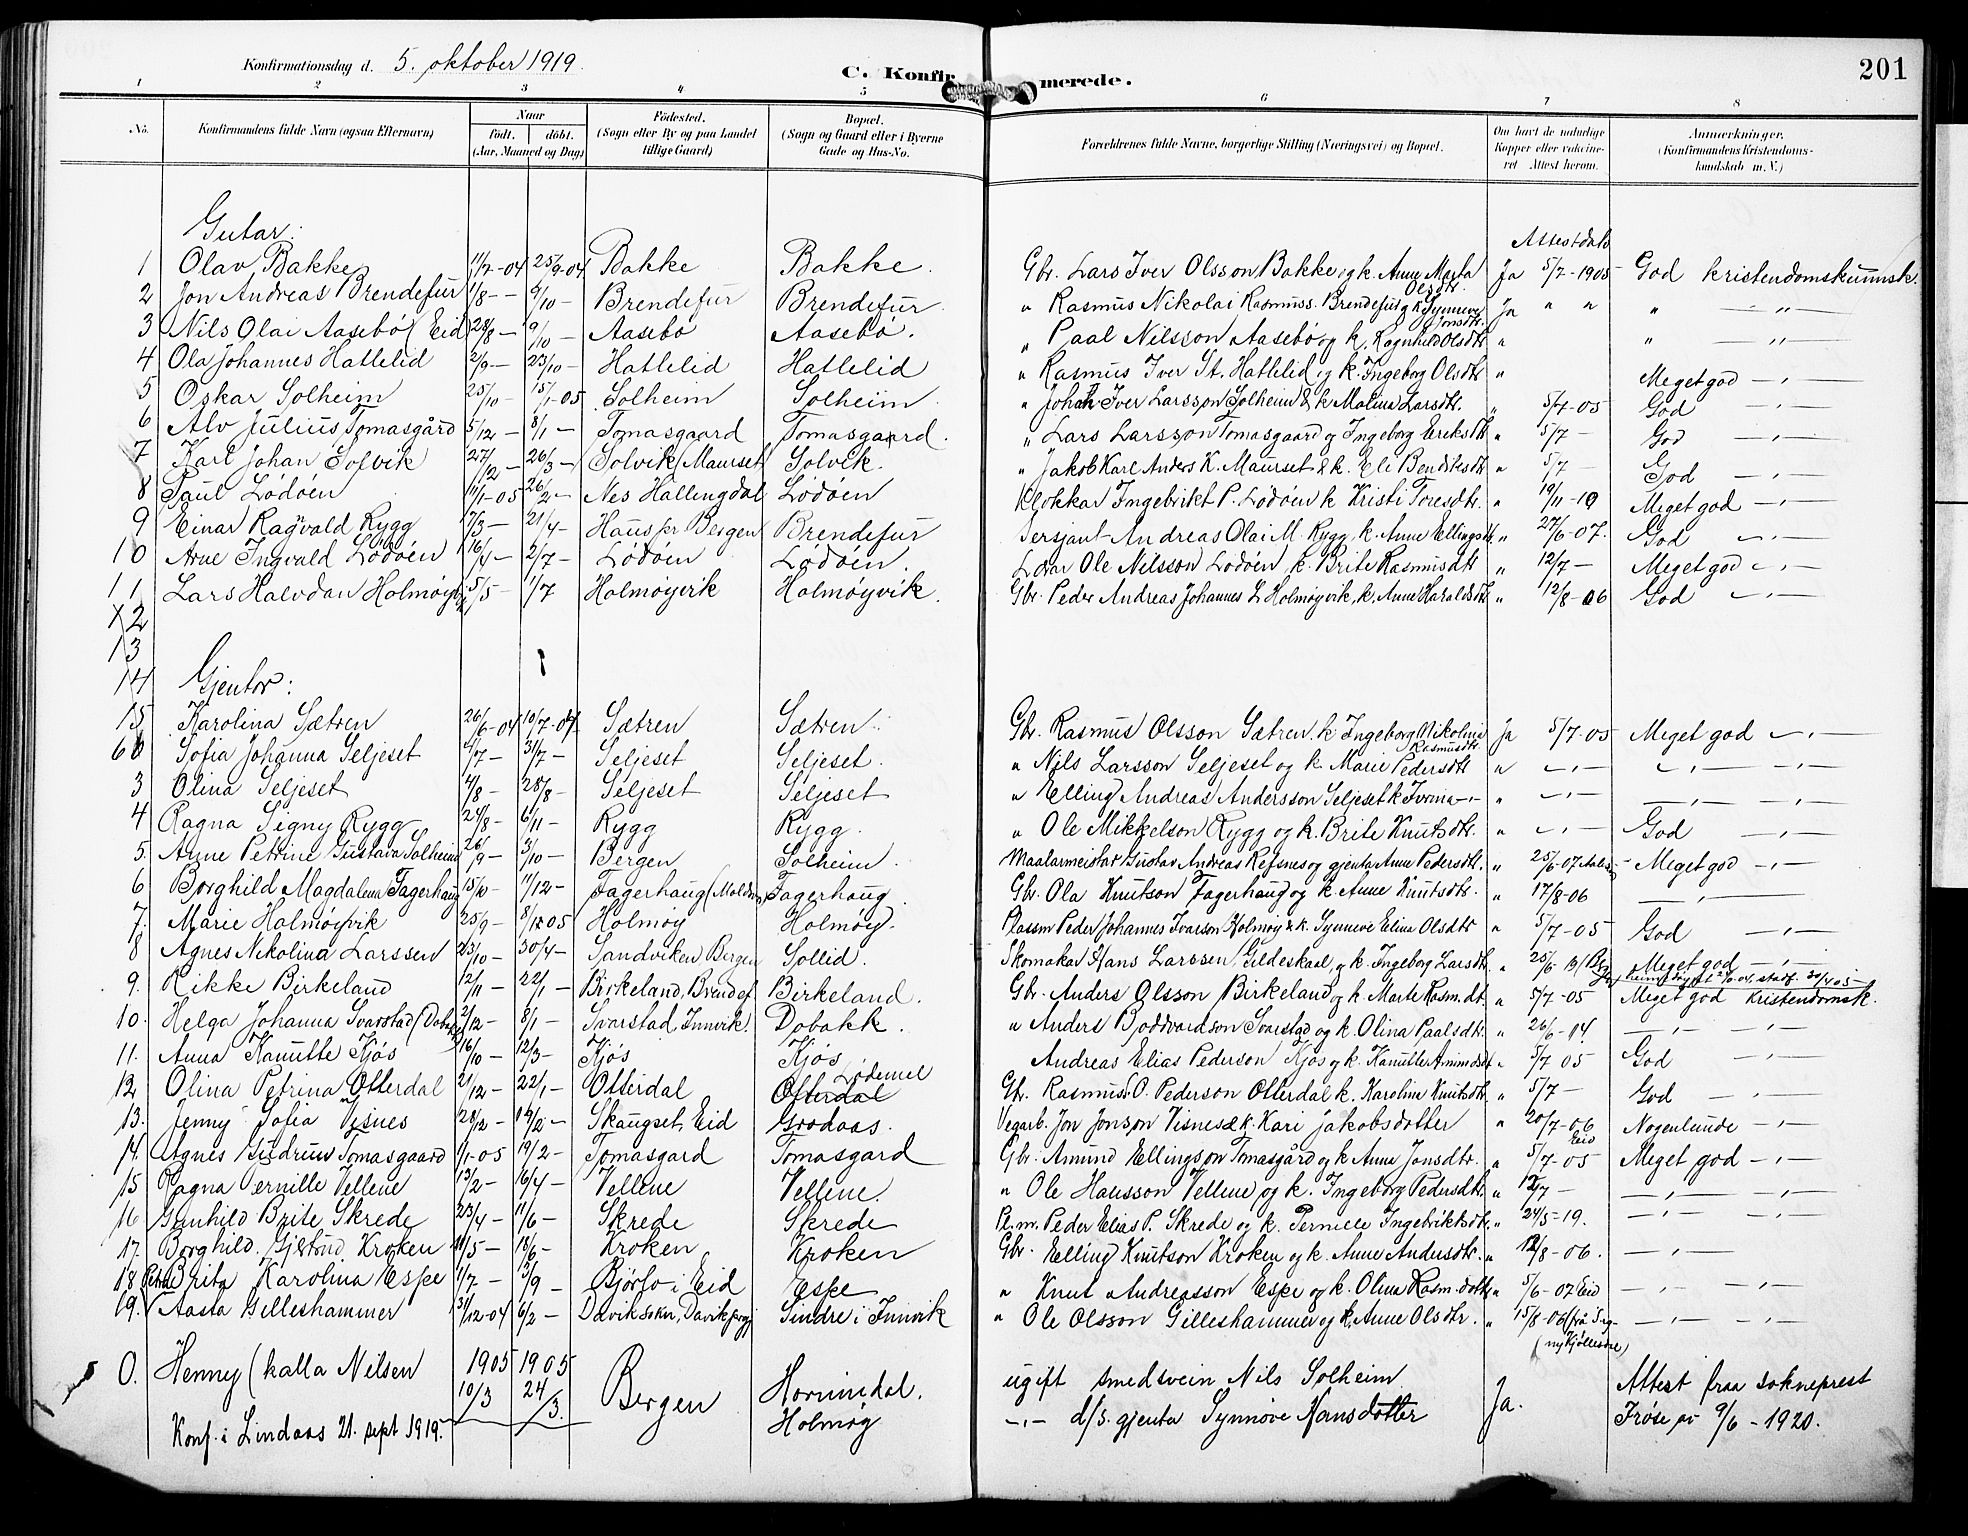 201
Konfirmationsdag d. 5. oktober 1919.
C. Konfirmerede.
1 2 3 4 5 6 7 8
No. Konfirmandens fulde Navn (ogsaa Efternavn) Naar født. døbt. (Aar, Maaned og Dag) Fødested. (Sogn eller By og paa Landet tillige Gaard) Bopæl. (Sogn og Gaard eller i Byerne Gade og Hus-No. Forældrenes fulde Navne, borgerlige Stilling (Næringsvei) og Bopæl. Om havt de naturlige Kopper eller vakcineret Attest herom. Anmærkninger. (Konfirmandens Kristendomskundskab m. V.)
Gutar:
Attestdato
1 Olav Bakke 11/7-04 25/9-04 Bakke Bakke. Gbr. Lars Iver Olsson Bakke og k. Anne Marta Olsdtr. Ja 5/7-1905 God kristendomskunnsk.
2 Jon Andreas Brendefur 1/8 - - 9/10 - Brendefur Brendefur " Rasmus Nikolai Rasmuss. Brendefur og k. Synneve Jonsdtr. Ja " " " -"-
3 Nils Olai Aasebø (Eid 28/8 - 9/10 - Aasebø Aasebø. " Paal Nilsson Aasebø og k. Ragnhild Olsdtr " " -"-
4 Ola Johannes Hatlelid 2/9 - 23/10 - Hatlelid Hatlelid " Rasmus Iver St. Hatlelid og k. Ingeborg Olsdtr " Meget god -"-
5 Oskar Solheim 25/10 - 15/1-05 Solheim Solheim " Johan Iver Larsson Solheim & k Malina Larsdtr. " 5/7-05 God -"-
6 Alv Julius Tomasgård 5/12 - 8/1 - Tomasgaard Tomasgaard. " Lars Larsson Tomasgaard og Ingeborg Eriksdtr " 5/7 - God -"-
7 Karl Johan Solvik 27/12 - 26/3 - Solvik, Maurset Solvik. " Jakob Karl Anders K. Maurset & k. Eli Bendiksdtr " 5/7 - God -"-
8 Paul Lødøen 11/1-05 26/2 - Nes Hallingdal Lødøen Klokkar Ingebrikt P. Lødøen k Kristi Toresdtr. " 19/11-19 Meget god -"-
9 Einar Ragvald Rygg 7/3 - 21/4 - Haus pr Bergen Brendefur Sersjant Andreas Olai M. Rygg, k. Anne Ellingsdtr. " 27/6-07. God -"-
10 Arne Ingvald Lødøen 16/4 - 2/7 - Lødøen Lødøen. Lærar Ole Nilsson Lødøen, k. Brite Rasmusdtr " 12/7 - Meget god -"-
11 Lars Halvdan Holmøyvik 5/5 - 1/7 Holmøyvik Holmøyvik. Gbr. Peder Andreas Johannes L. Holmøyvik, k. Anne Haraldsdtr " 12/8-06 God -"-
12
13
14 Gjentor:
15 Karolina Sætren 26/6-04 10/7-04 Sætren Sætren. Gbr. Rasmus Olsson Sætren k Ingeborg Nikolina Rasmusdtr. Ja 5/7-05 Meget god -"-
Sofia Johanna Seljeset 4/7 - 31/7 - Seljeset Seljeset. " Nils Larsson Seljeset og k. Marie Pedersdtr " -"- -"- -"-
3 Olina Seljeset 4/8 - 28/8 - Seljeset Seljeset " Elling Andreas Andersson Seljeset k Ivrina -"- " -"- -"- -"-
4 Ragna Signy Rygg 24/8 - 6/11 - Rygg Rygg. " Ole Mikkelson Rygg og k. Brite Knutsdtr. " -"- God -"-
5. Anne Petrine Gustava Solheim 26/9 - 3/10 - Bergen Solheim. Maalarmeistar Gustav Andreas Refsnes og gjenta Anne Pedersdtr. " 25/6-07 Meget god -"-
6 Borghild Magdalena Fagerhaug 15/10 11/12 - Fagerhaug Fagerhaug. Gbr. Ola Knutson Fagerhaug og k Anne Knutsdtr. " 17/8-06 -"-
7. Marie Holmøyvik 25/9 - 8/1 05 Holmøy Holmøy. Plassm Peder Johannes Ivarson Holmøy & k. Synneve Elina Olsdtr " 5/7-05 God -"-
8 Agnes Nikolina Larssen 23/10 - 30/4 - Sandviken Bergen Sollid. Skomakar Hans Larssen, Gildeskaal, og k. Ingeborg Larsdtr. " 25/6-13 Meget god -"-
9. Rikke Birkeland 12/11 - 22/1 - Birkeland, Brendef. Birkeland. Gbr. Anders Olsson Birkeland og k. Marte Rasm.dt. " 5/7-05 Meget god kristendomsk.
10. Helga Johanna Svarstad 2/12 - 8/1 - Svarstad, Innvik. Dobakk. " Anders Boddvardson Svarstad og k. Olina Paalsdtr. " 26/6-14. -"- -"-
11. Anna Kanutte Kjøs 16/10 - 12/3 - Kjøs Kjøs Andreas Elias Pederson Kjøs og k. Kanutte Amundsdtr " 5/7 05 God -"-
12 Olina Petrina Otterdal 21/12 - 22/1 - Otterdal Otterdal Lødemel Gbr. Rasmus O. Pederson Otterdal k. Karoline Knutsdtr. " 5/7 - God -"-
13. Jenny Sofia Visnes 28/2 - 16/2 - Skaugset, Eid Grodaas. Vegarb. Jon Jonsson Visnes & k. Kari Jakobsdotter " 20/7-06 Eid Nogenlunde -"-
14. Agnes Gudrun Tomasgaard 1/1-05 19/2 - Tomasgard Tomasgard Gbr. Amund Ellingson Tomasgård og k Anne Jonsdtr. " 5/7-05 Meget god -"-
15 Ragna Pernille Vellene 13/2 - 16/4 - Vellene Vellene. " Ole Hansson Vellene og k. Ingeborg Pedersdtr. " 12/7 - -"- -"-
16 Gunhild Brite Skrede 23/4 - 11/6 - Skrede Skrede Pl.m. Peder Elias P. Skrede og k. Pernille Ingebriktsdtr. " 24/5-19. -"- -"-
17. Borghild Gjertrud Kroken 11/5 - 18/6 - Kroken Kroken Gbr. Elling Knutson Kroken og k. Anne Andersdtr. " 12/8-06. -"-
18 Brita Karolina Espe 1/7 - 3/9 - Bjørlo i Eid Espe " Knut Andreasson Espe og k. Olina Rasm.dotter " 5/6-07 Eid -"- -"-
19. Aasta Gilleshammer 31/12-04 6/2 - Davik sokn, Davik Sindre i Innvik " Ole Olsson Gilleshammer og k. Anne Olsdtr. " 15/8-06 -"- -"-
0. Henny (kalla Nilsen 1905 10/3 1905 24/3. Bergen Hornindal. Holmøy ugift smedsvein Nils Solheim Ja. Attest fraa sokneprest
Konf. i Lindaas 21. sept 1919. -"- d/s. gjenta Synnøve Hansdotter Frøse pr 9/6 - 1920.